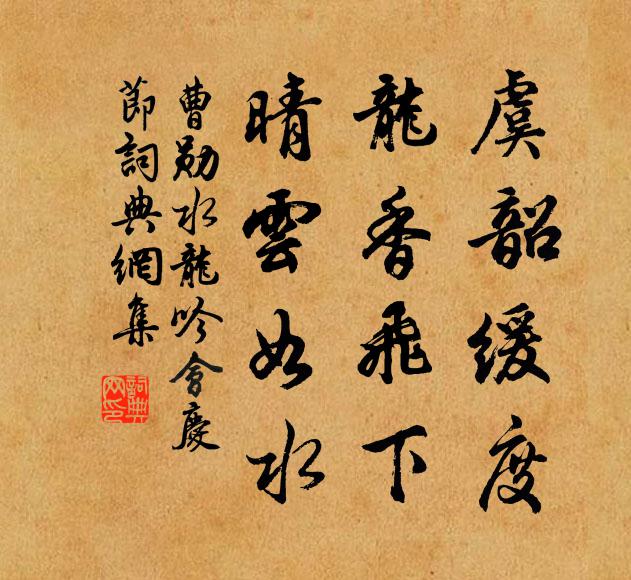 虞韶緩度
龍香飛下
晴雲如水
曹勛水龍吟會慶
節詞典網集
詞典網印